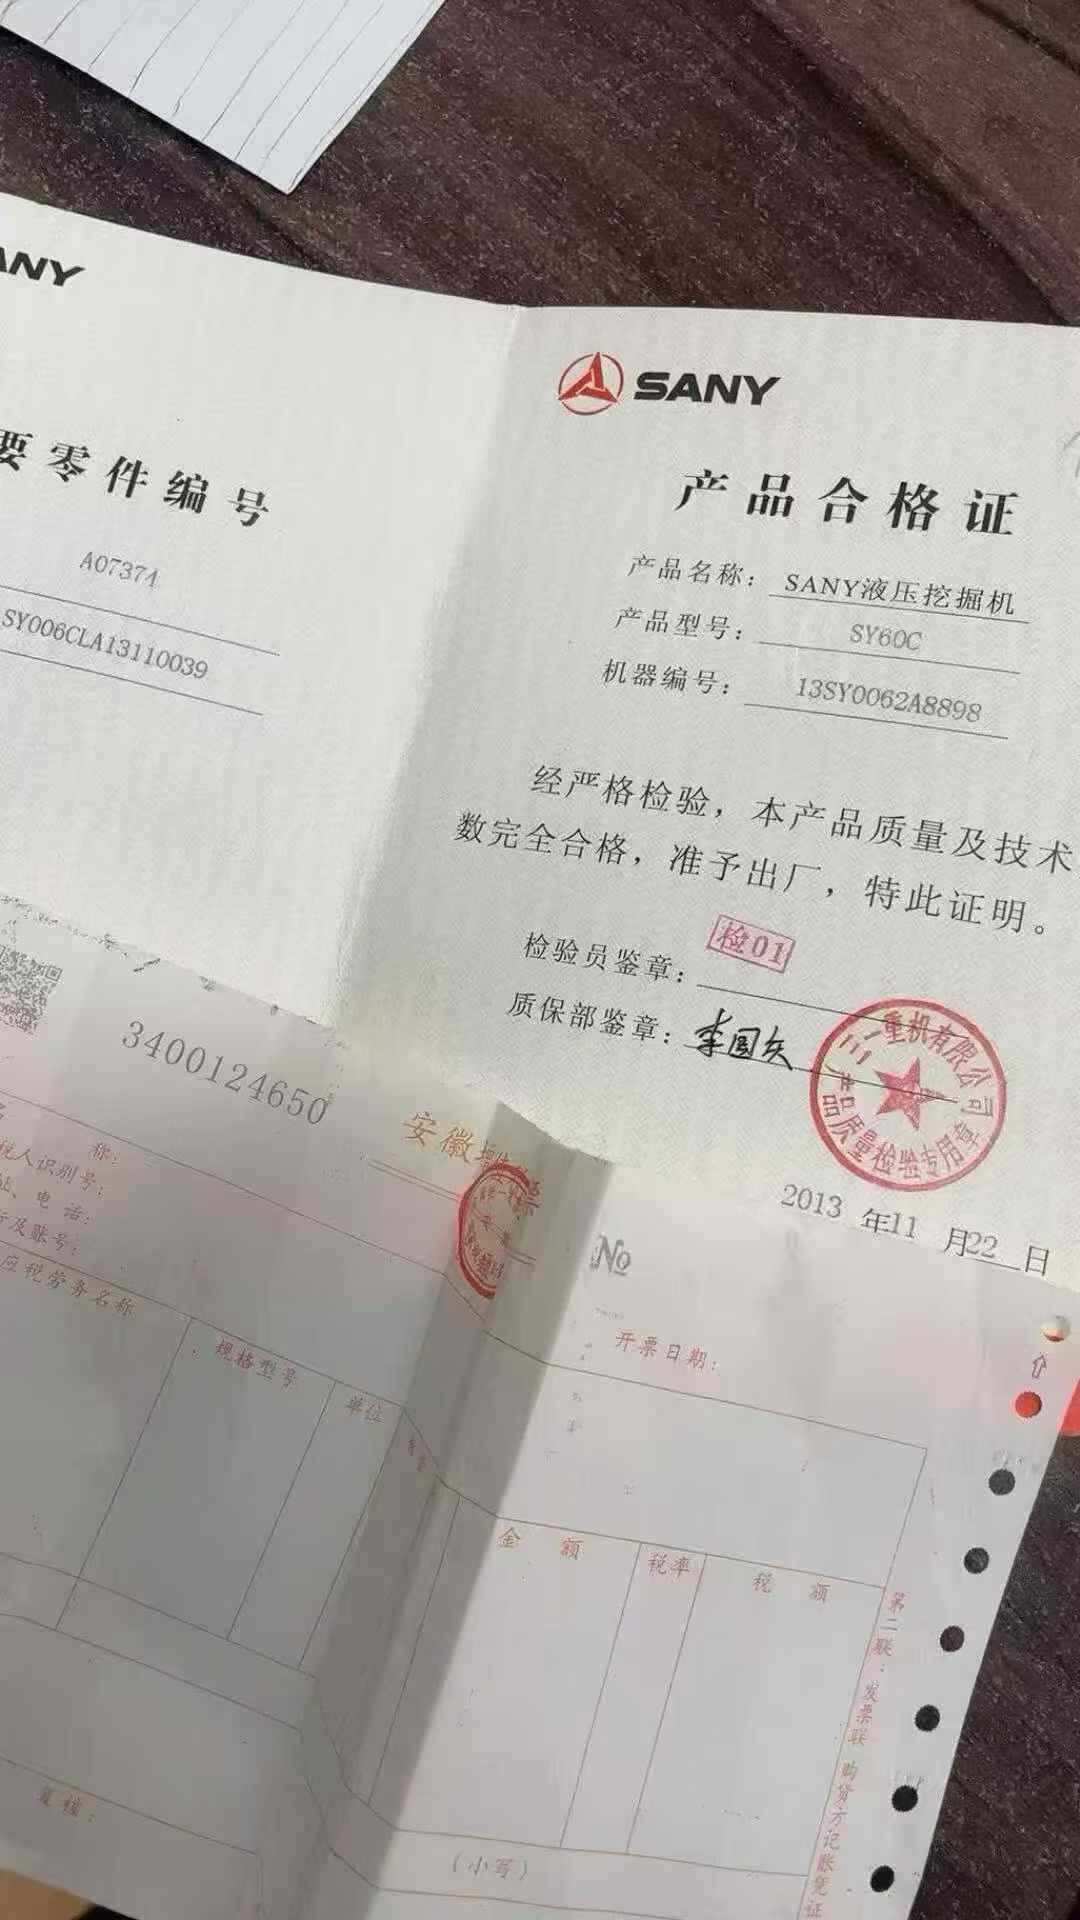 ANY
要零件编号
A07374
SY006CLA13110039
SANY
产品合格证
产品名称：SANY液压挖掘机
产品型号：SY60C
机器编号：13SY0062A8898
经严格检验，本产品质量及技术
数完全合格，准予出厂，特此证明。
检验员鉴章：检01
质保部鉴章：李国庆
三一重机有限公司
产品质量检验专用章
2013年11月22日
3400124650
安徽
№
开票日期：
称：
税人识别号：
址、电话：
行及账号：
应税劳务名称
规格型号
单位
金额
税率
税额
（小写）
复核：
第二联：发票联 购货方记账凭证